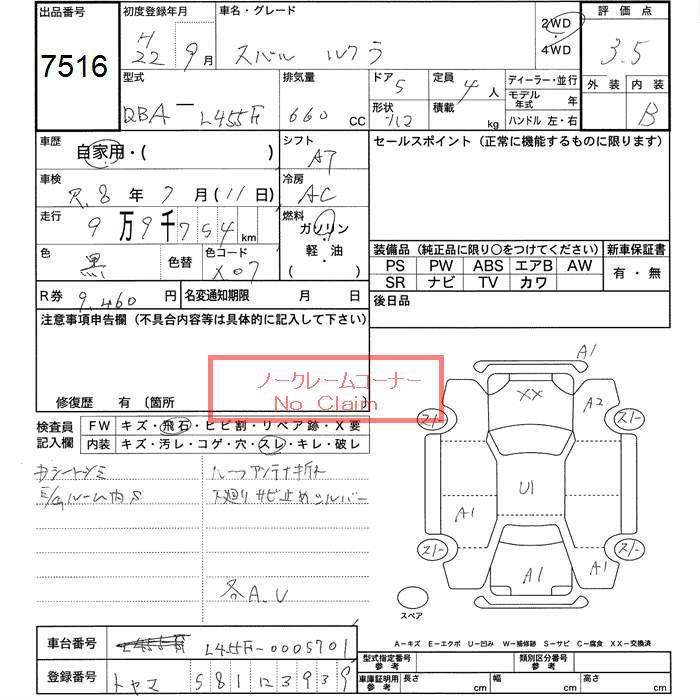 出品番号 初度登録年月 車名・グレード 2WD・4WD 評価点
7516 H22 9月 スバル ルクラ 3.5
型式 排気量 ドア 5 定員 4人 ディーラー・並行 外装 内装
DBA-L455F 660 CC 形状 積載 kg モデル年式 年 B
ハンドル 左・右
車歴 自家用・( ) シフト AT セールスポイント (正常に機能するものに限ります)
車検 R.8年7月(11日) 冷房 AC
走行 9万9千754km 燃料 ガソリン・軽・油 ( )
装備品 (純正品に限り○をつけてください) 新車保証書
色 黒 色替 色コード X07 PS PW ABS エアB AW 有・無
SR ナビ TV カワ
R券 9,460円 名変通知期限 月 日 後日品
注意事項申告欄 (不具合内容等は具体的に記入して下さい)
ノークレームコーナー
No Claim
修復歴 有 〔箇所
検査員記入欄 FW キズ・飛石・ヒビ割・リペア跡・X要
内装 キズ・汚レ・コゲ・穴・スレ・キレ・破レ
シートシミ ルーフアンテナ折れ
E/gルーム内S 下廻りサビ止めシルバー
各A.U
A1
XX A2
スノー スノー
U1
A1
スノー スノー
A1 A1
スペア
A-キズ E-エクボ U-凹み W-補修跡 S-サビ C-腐食 XX-交換済
車台番号 L455F-0005701 型式指定番号 参考 類別区分番号 参考
登録番号 トヤマ 581 1 2 3939 車庫証明用参考 長さ cm 幅 cm 高さ cm